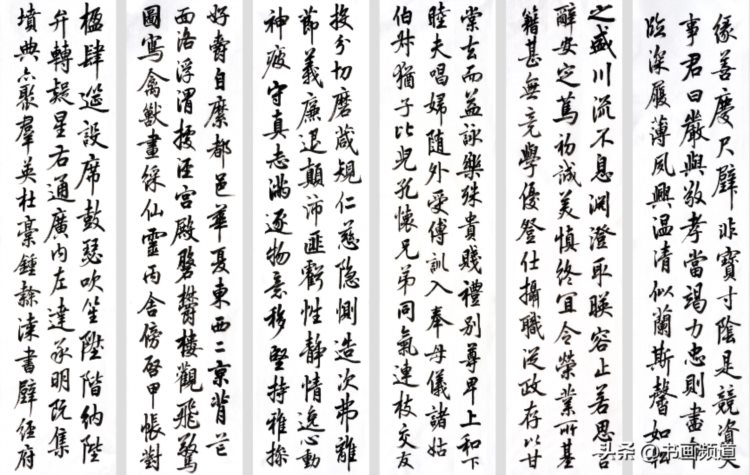 缘善慶尺璧非寶寸陰是競資父
事君曰嚴與敬孝當竭力忠則盡命
臨深履薄夙興温凊似蘭斯馨如松
之盛川流不息淵澄取暎容止若思言
辭安定篤初誠美慎終宜令榮業所基
籍甚無竟學優登仕攝職從政存以甘
棠去而益詠樂殊貴賤禮別尊卑上和下
睦夫唱婦随外受傅訓入奉母儀諸姑
伯叔猶子比兒孔懷兄弟同氣連枝交友
投分切磨箴規仁慈隐惻造次弗離
節義廉退顛沛匪虧性靜情逸心動
神疲守真志滿逐物意移堅持雅操
好爵自縻都邑華夏東西二京背芒
面洛浮渭據涇宮殿磐欎樓觀飛驚
圖寫禽獸畫綵仙靈丙舍傍啟甲帳對
楹肆筵設席鼓瑟吹笙陞階納陛
弁轉疑星右通廣内左達承明既集
墳典亦聚羣英杜稾鍾隸漆書壁經府
头条 @书画频道